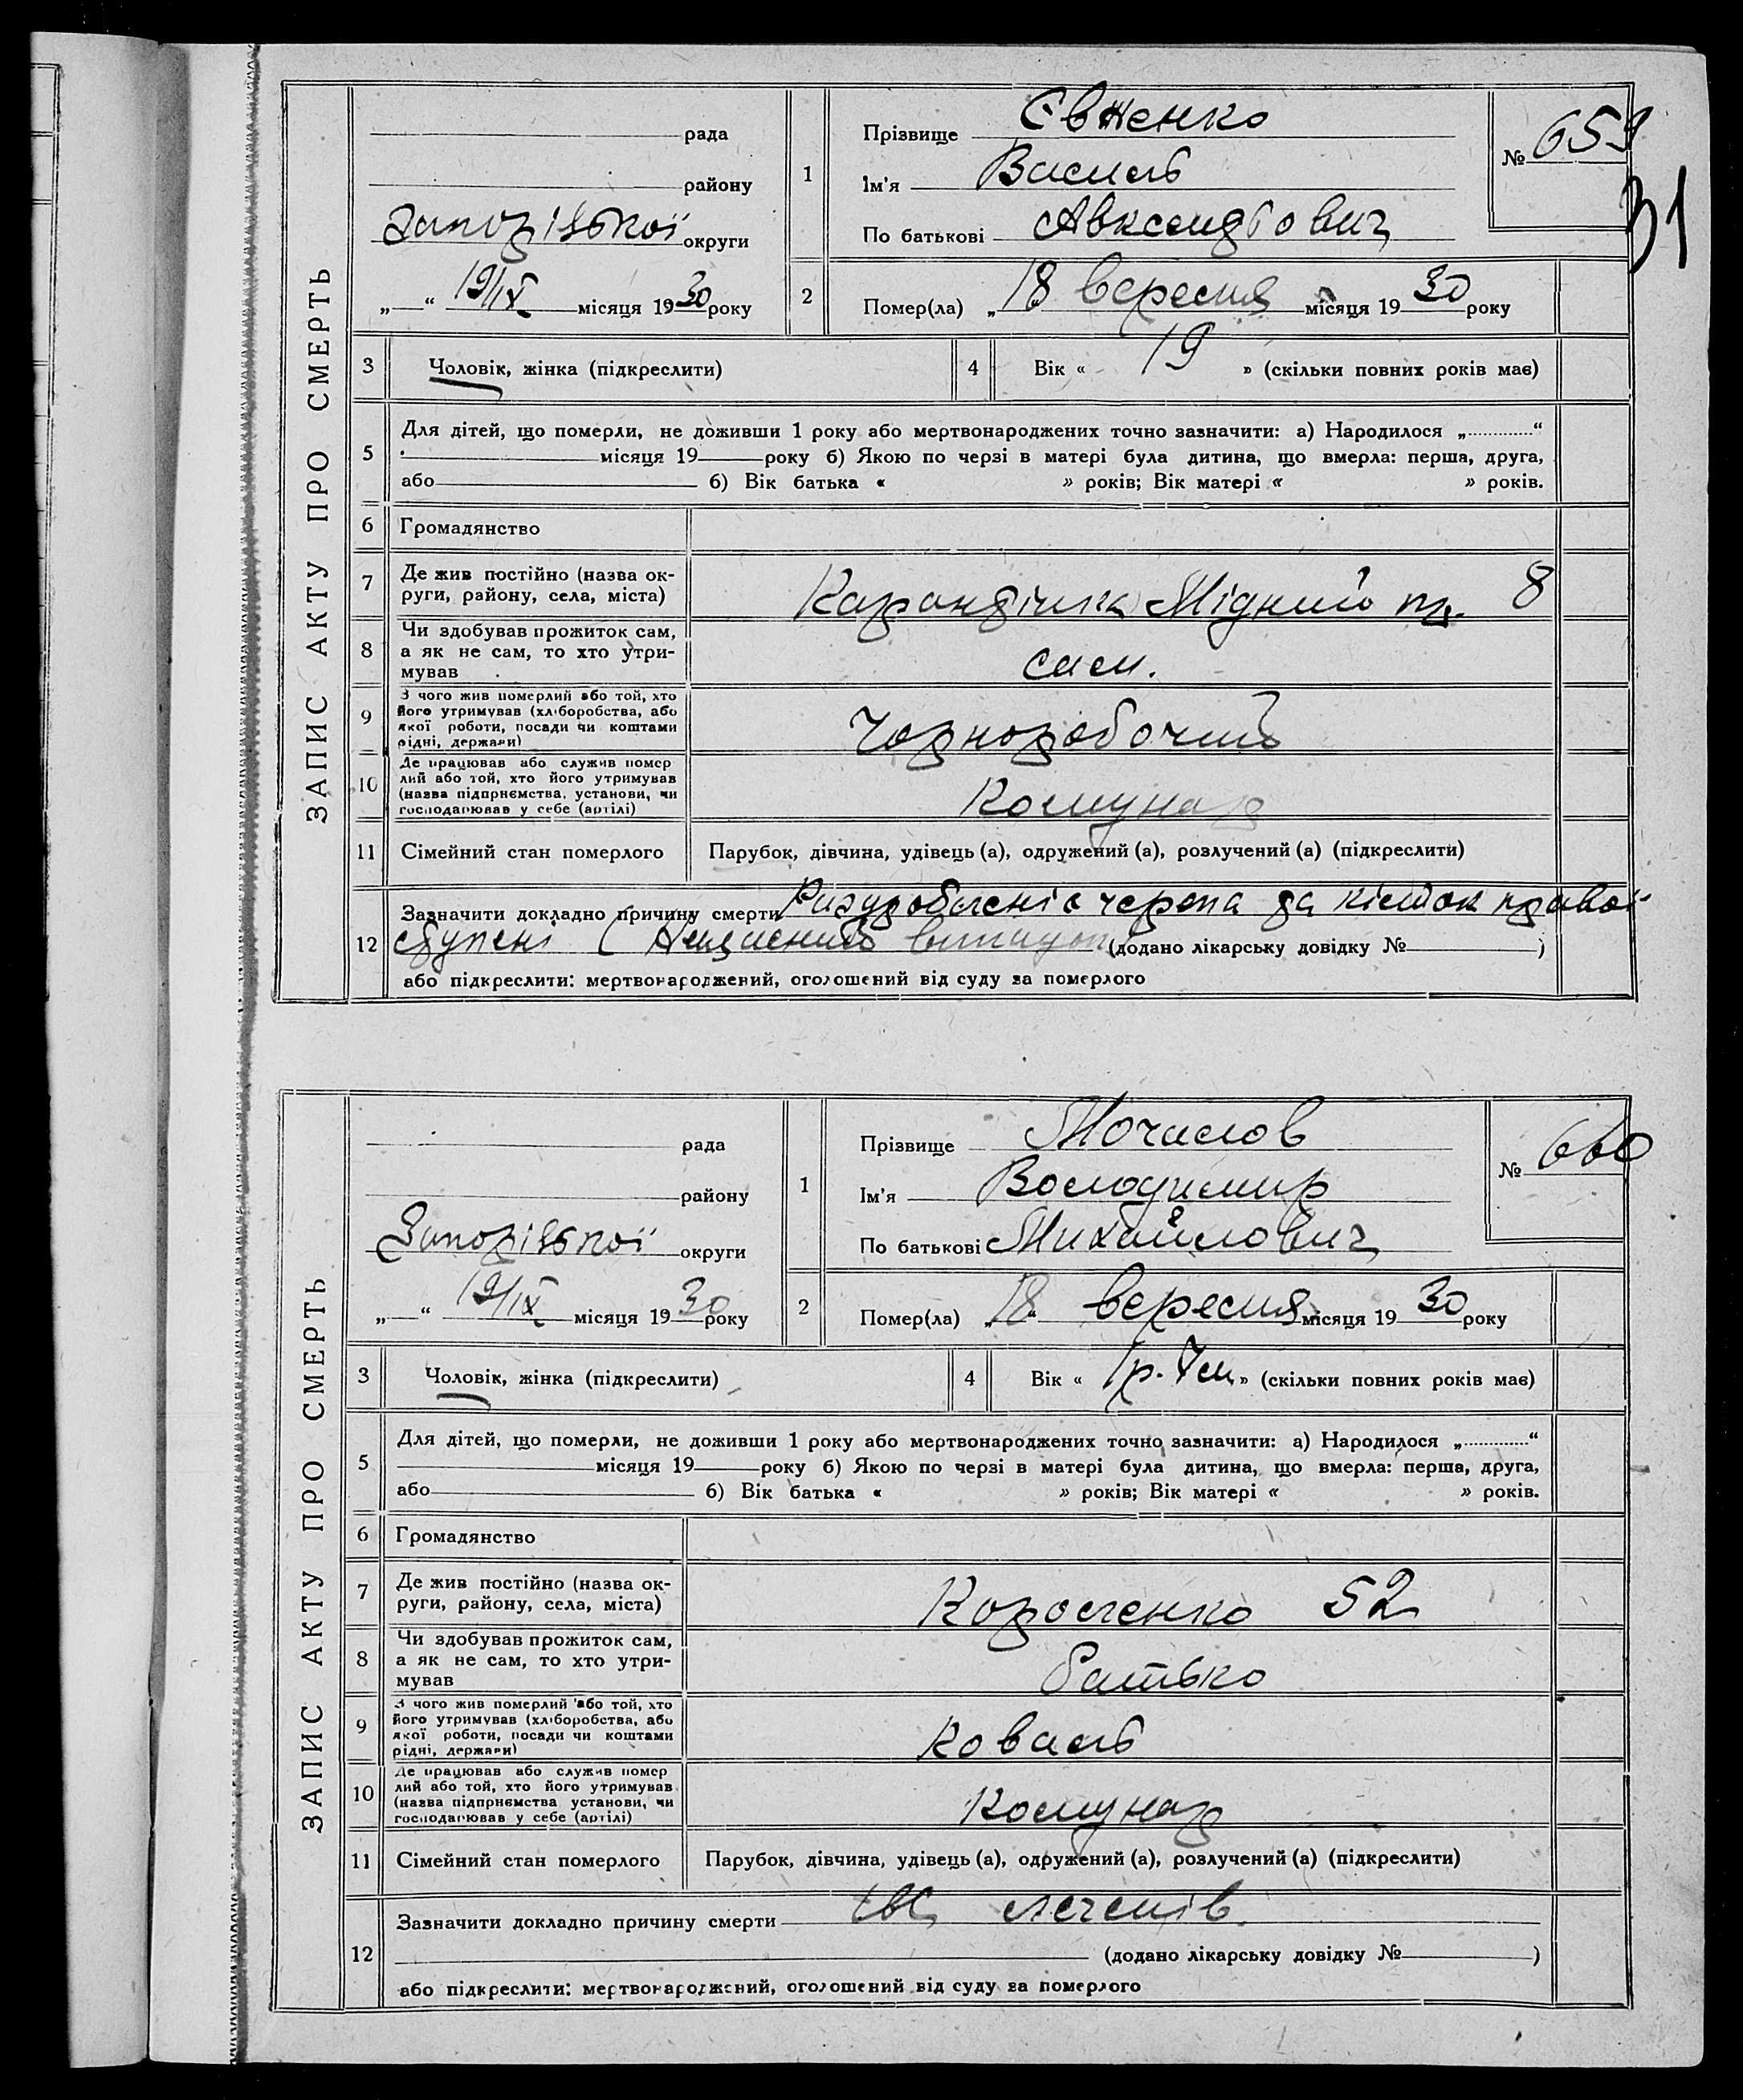 ЗАПИС АКТУ ПРО СМЕРТЬ
рада
району
Запорізької округи
„ “ 19/IX місяця 1930 року
1
Прізвище Євженко
Ім'я Василь
По батькові Авксентович
№ 659
31
2
Помер(ла) „ 18 вересня місяця 1930 року
3
Чоловік, жінка (підкреслити)
4
Вік « 19 » (скільки повних років має)
5
Для дітей, що померли, не доживши 1 року або мертвонароджених точно зазначити: а) Народилося „ “
місяця 19 року б) Якою по черзі в матері була дитина, що вмерла: перша, друга,
або б) Вік батька « » років; Вік матері « » років.
6
Громадянство
7
Де жив постійно (назва ок-
руги, району, села, міста)
Мідний 8
8
Чи здобував прожиток сам,
а як не сам, то хто утри-
мував
сам.
9
З чого жив померлий або той, хто
його утримував (хліборобства, або
якої роботи, посади чи коштами
рідні, держави)
Чорноробочий
10
Де працював або служив помер
лий або той, хто його утримував
(назва підприємства, установи, чи
господарював у себе (артілі)
Комунар
11
Сімейний стан померлого
Парубок, дівчина, удівець (а), одружений (а), розлучений (а) (підкреслити)
12
Зазначити докладно причину смерти черепа та кісток правої
ступені (Нещасний випадок (додано лікарську довідку № )
або підкреслити: мертвонароджений, оголошений від суду за померлого
ЗАПИС АКТУ ПРО СМЕРТЬ
рада
району
Запорізької округи
„ “ 19/IX місяця 1930 року
1
Прізвище Мочалов
Ім'я Володимир
По батькові Михайлович
№ 660
2
Помер(ла) „ 18 “ вересня місяця 1930 року
3
Чоловік, жінка (підкреслити)
4
Вік « 1р. 7м » (скільки повних років має)
5
Для дітей, що померли, не доживши 1 року або мертвонароджених точно зазначити: а) Народилося „ “
місяця 19 року б) Якою по черзі в матері була дитина, що вмерла: перша, друга,
або б) Вік батька « » років; Вік матері « » років.
6
Громадянство
7
Де жив постійно (назва ок-
руги, району, села, міста)
Короленко 52
8
Чи здобував прожиток сам,
а як не сам, то хто утри-
мував
батько
9
З чого жив померлий або той, хто
його утримував (хліборобства, або
якої роботи, посади чи коштами
рідні, держави)
Коваль
10
Де працював або служив помер
лий або той, хто його утримував
(назва підприємства установи, чи
господарював у себе (артілі)
Комунар
11
Сімейний стан померлого
Парубок, дівчина, удівець (а), одружений (а), розлучений (а) (підкреслити)
12
Зазначити докладно причину смерти легенів.
(додано лікарську довідку № )
або підкреслити: мертвонароджений, оголошений від суду за померлого